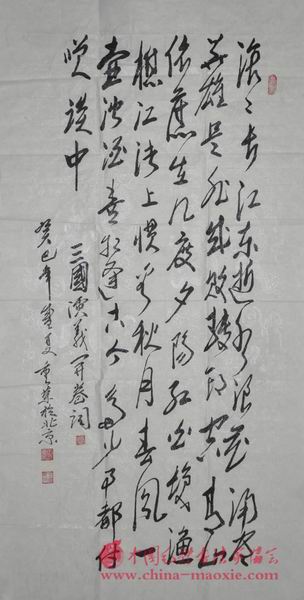 滚々长江东逝水浪花淘尽
英雄是非成败转头空青山
依舊在几度夕陽红白发渔
樵江渚上惯看秋月春風一
壶浊酒喜相逢古今多少事都付
笑谈中
三國演義开卷词
癸巳年夏於北京
中国
www.china-maoxie.com